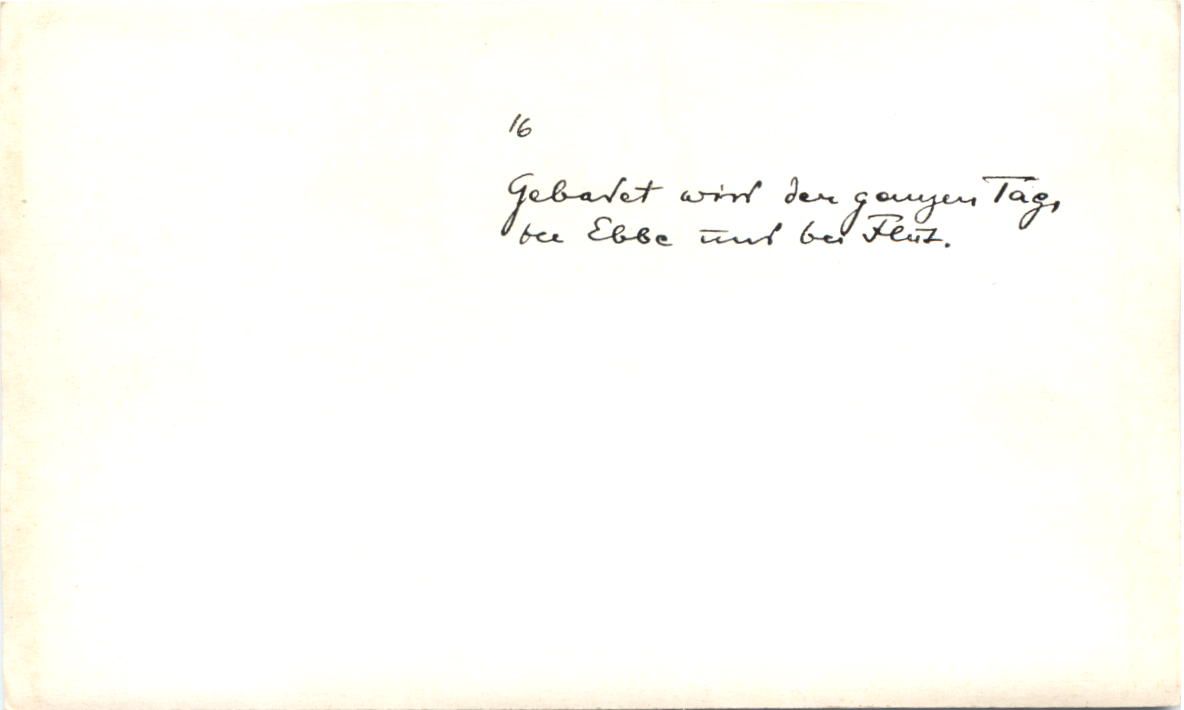 16
Gebadet wird den ganzen Tag,
bei Ebbe und bei Flut.